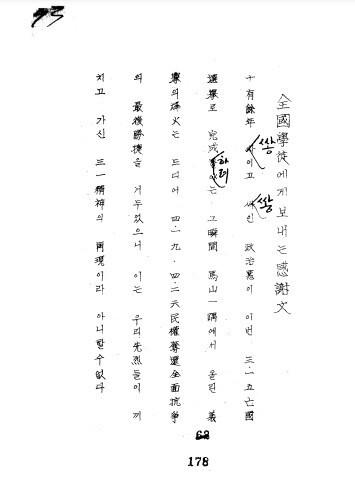 全國學徒에게 보내는 感謝文
十有餘年 쌓이고 쌓인 政治惡이 이번 三·一五亡國
選擧로 完成하려는 그瞬間 馬山一隅에서 올린 義
擧의 烽火는 드디어 四·一九·四·二六民權奪還全面抗爭
의 最後勝捷을 거두었으니 이는 우리先烈들이 끼
치고 가신 三一精神의 再現이라 아니할수없다
178